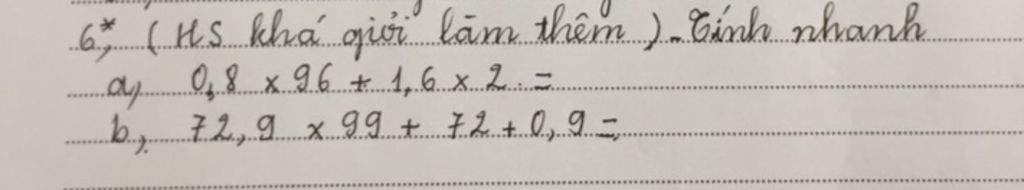 6*, (HS khá giỏi làm thêm). Tính nhanh
a, 0,8 x 96 + 1,6 x 2 =
b, 72,9 x 99 + 72 + 0,9 =